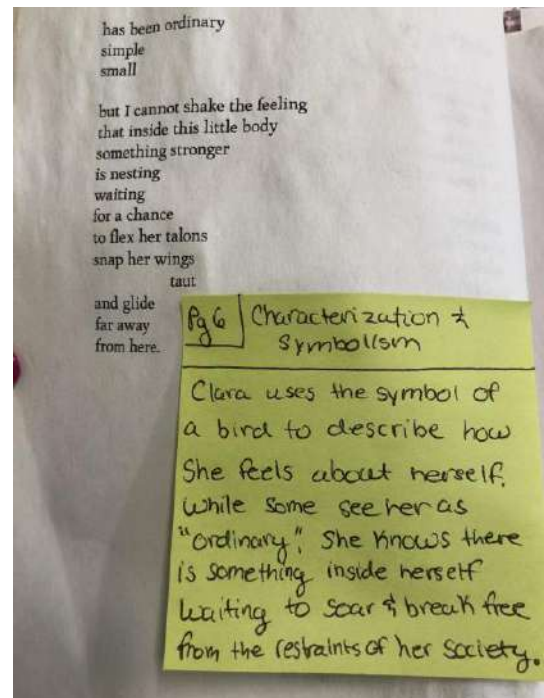 has been ordinary
simple
small
but I cannot shake the feeling
that inside this little body
something stronger
is nesting
waiting
for a chance
to flex her talons
snap her wings
taut
and glide
far away
from here.
Pg 6
Characterization &
Symbolism
Clara uses the symbol of
a bird to describe how
She feels about herself.
While some see her as
"ordinary", She knows there
is something inside herself
waiting to soar & break free
from the restraints of her society.